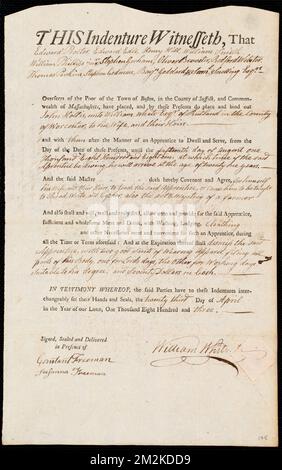 THIS Indenture Witnesseth, That
Edward Proctor Edward Edes Henry Hill William Smith
William Phillips Stephen Gorham Oliver Brewster Redford Webster
Thomas Perkins Stephen Codman Benj. Goddard Esqrs.
Overseers of the Poor of the Town of Boston, in the County of Suffolk, and Common-
wealth of Massachusetts, have placed, and by these Presents do place and bind out
John unto William White Esq. of Rutland in the County
of Worcester, to his Wife, and their Heirs
and with them after the Manner of an Apprentice to Dwell and Serve, from the
Day of the Date of these Presents, until the day of August one
thousand Eight Hundred and Eight at which time the said
Apprentice if living will arrive at the age of twenty one years
And the said Master doth hereby Covenant and Agree, for himself
his Wife and their Heirs, to teach the said Apprentice, or cause him to be taught
to Read Write and Cypher, also the art & mystery of a farmer
And also shall and will, find and provide for the said Apprentice,
sufficient and wholesome Meat and Drink, with Washing, Lodging Cloathing
and other Necessaries meet and convenient for such an Apprentice, during
all the Time or Term aforesaid: And at the Expiration thereof shall dismiss the said
Apprentice with two good suits of wearing Apparel fitting for all
parts of his Body, one for Lords days, the other for Working days
suitable to his degree, and Twenty Dollars in Cash.
IN TESTIMONY WHEREOF, the said Parties have to these Indentures inter-
changeably set their Hands and Seals, the twenty third Day of April
in the Year of our Lord, One Thousand Eight Hundred and three.
Signed, Sealed and Delivered
in Presence of
William White
Constant Freeman
Susanna Freeman
alamy
Image ID: 2M2KDD9
www.alamy.com